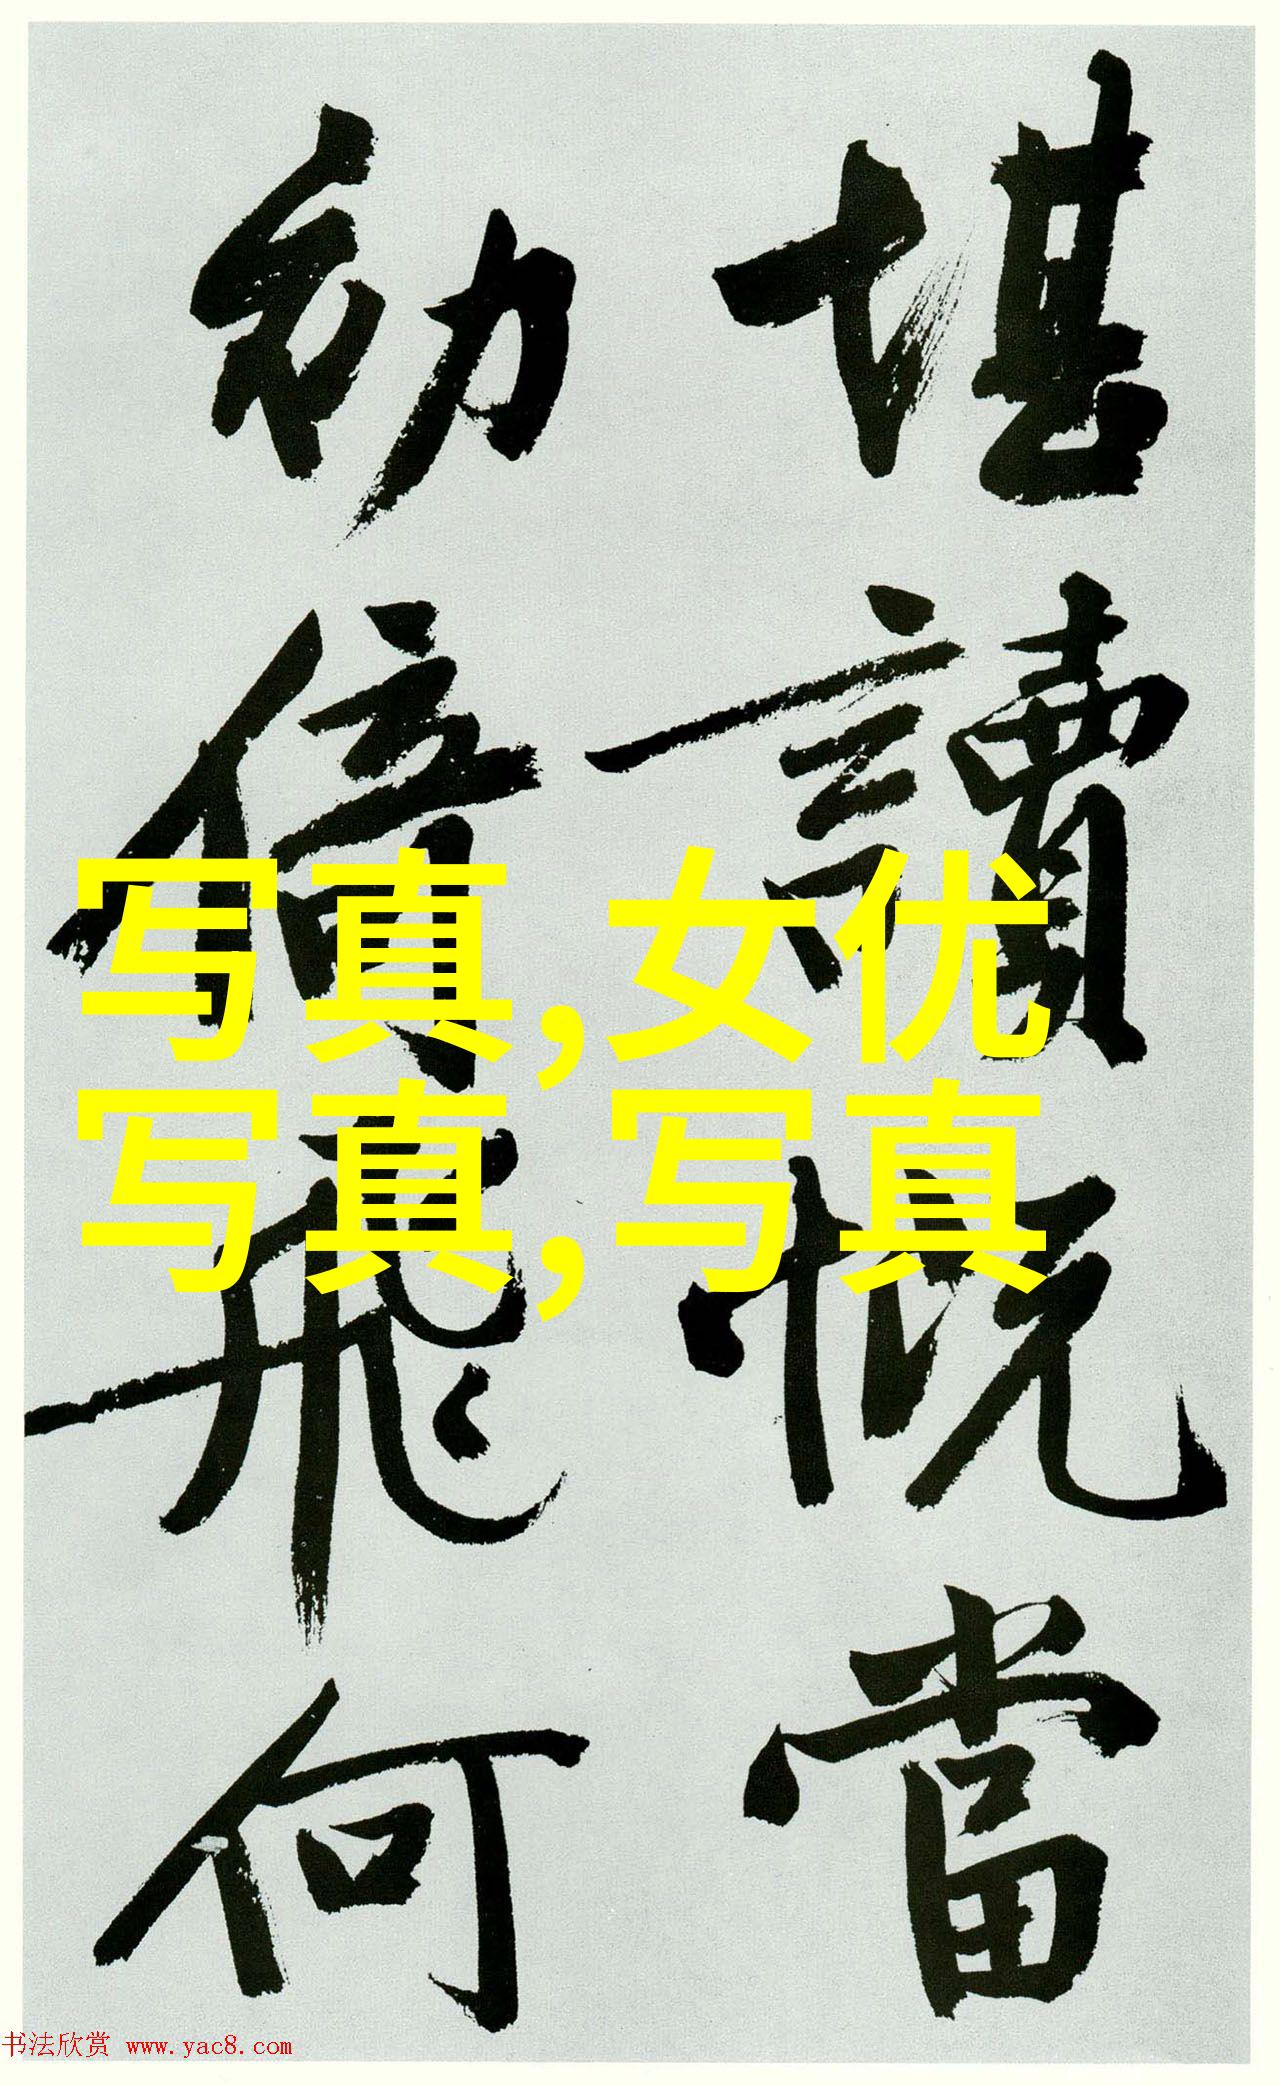 堪讀慨當
幼倍飛何
写真,女优
写真,写真
书法欣赏 www.yac8.com